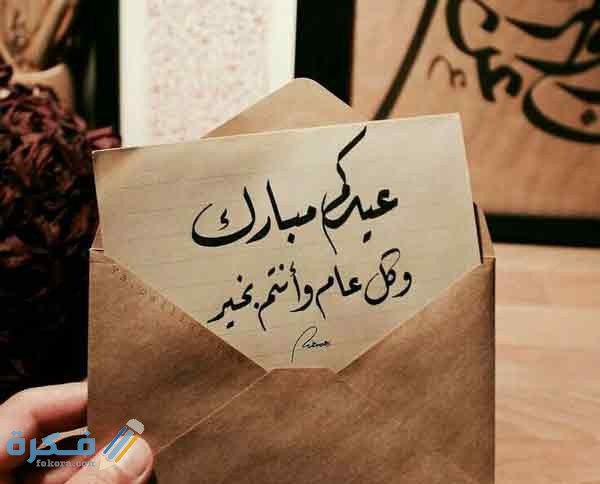 عيدكم مبارك
وكل عام وأنتم بخير
فكرة
fokera.com